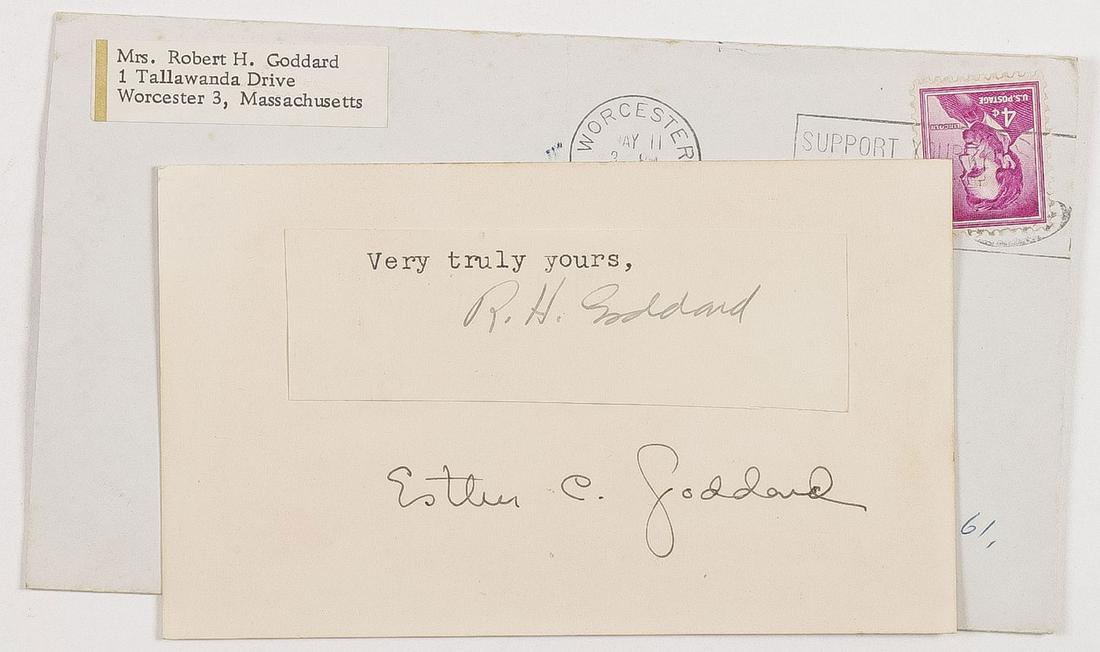 Mrs. Robert H. Goddard
1 Tallawanda Drive
Worcester 3, Massachusetts
WORCESTER
MAY 11
SUPPORT
U.S. POSTAGE
4¢
LINCOLN
Very truly yours,
R. H. Goddard
Esther C. Goddard
61,